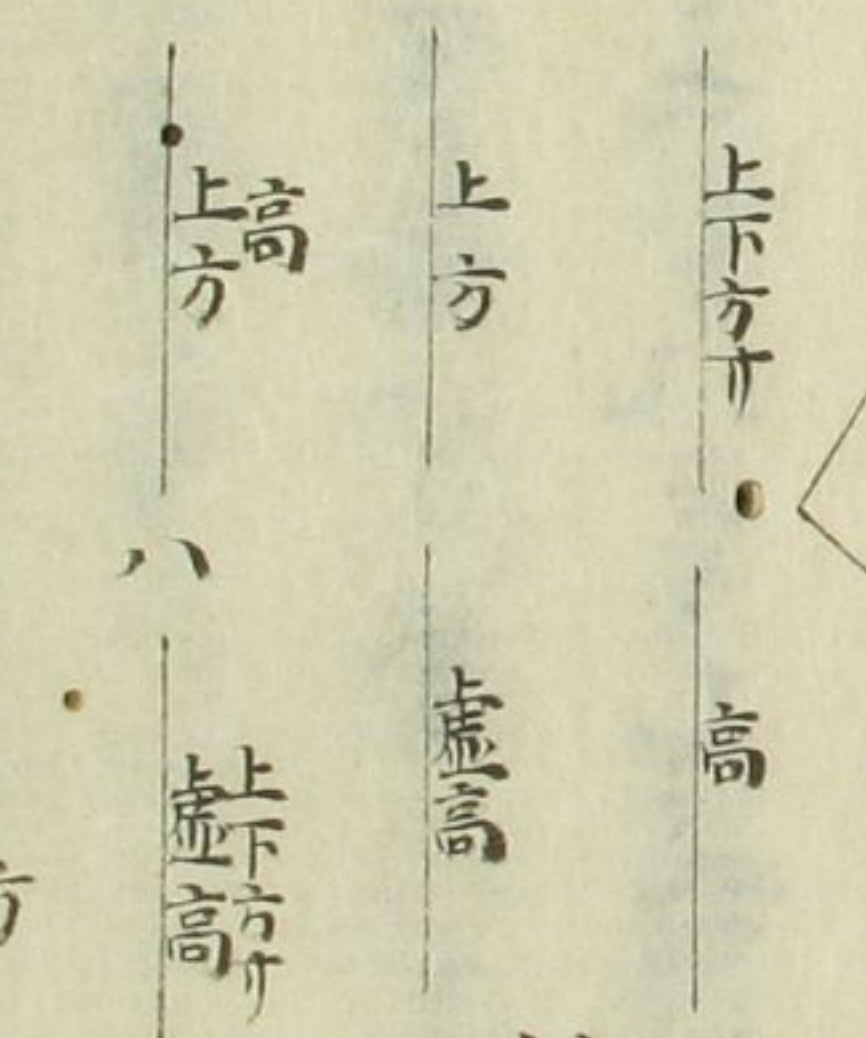 上下方丅
高
上方
虚高
高
上方
八
上下方丅
虚高
方